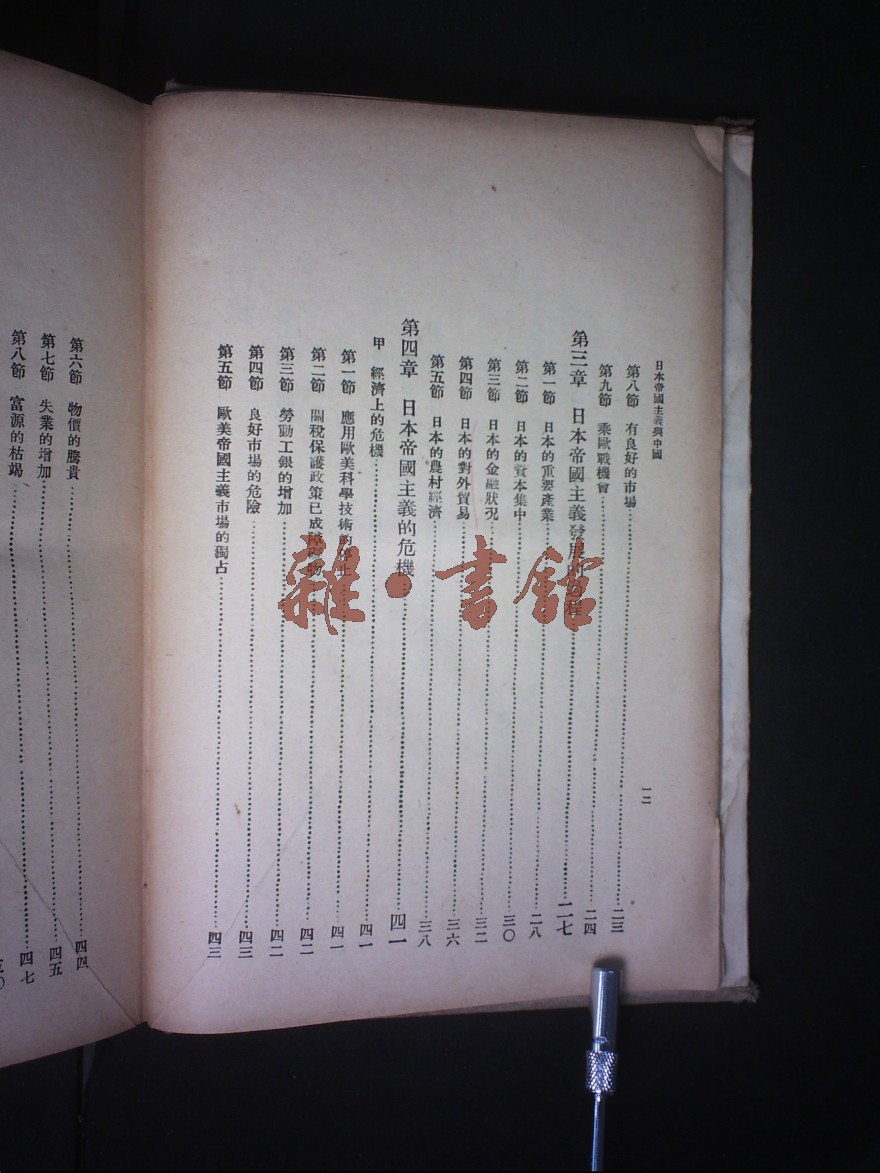 日本帝國主義與中國
一二
第八節 有良好的市場……二三
第九節 乘歐戰機會……二四
第三章 日本帝國主義發展的過程……二七
第一節 日本的重要產業……二八
第二節 日本的資本集中……三〇
第三節 日本的金融狀況……三二
第四節 日本的對外貿易……三六
第五節 日本的農村經濟……三八
第四章 日本帝國主義的危機……四一
甲 經濟上的危機……四一
第一節 應用歐美科學技術的停止……四一
第二節 關稅保護政策已成障碍物……四二
第三節 勞動工銀的增加……四二
第四節 良好市場的危險……四三
第五節 歐美帝國主義市場的獨占……四三
第六節 物價的騰貴……四四
第七節 失業的增加……四五
第八節 富源的枯竭……四七
雜·書館